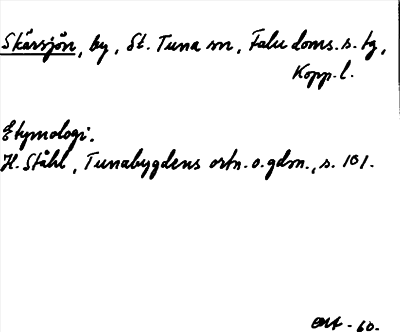 Skårsjön, by, St. Tuna sn, Falu doms. s. tg,
Kopp. l.
Etymologi.
H. Ståhl, Tunabygdens ortn. o. gdsn., s. 101.
-60.